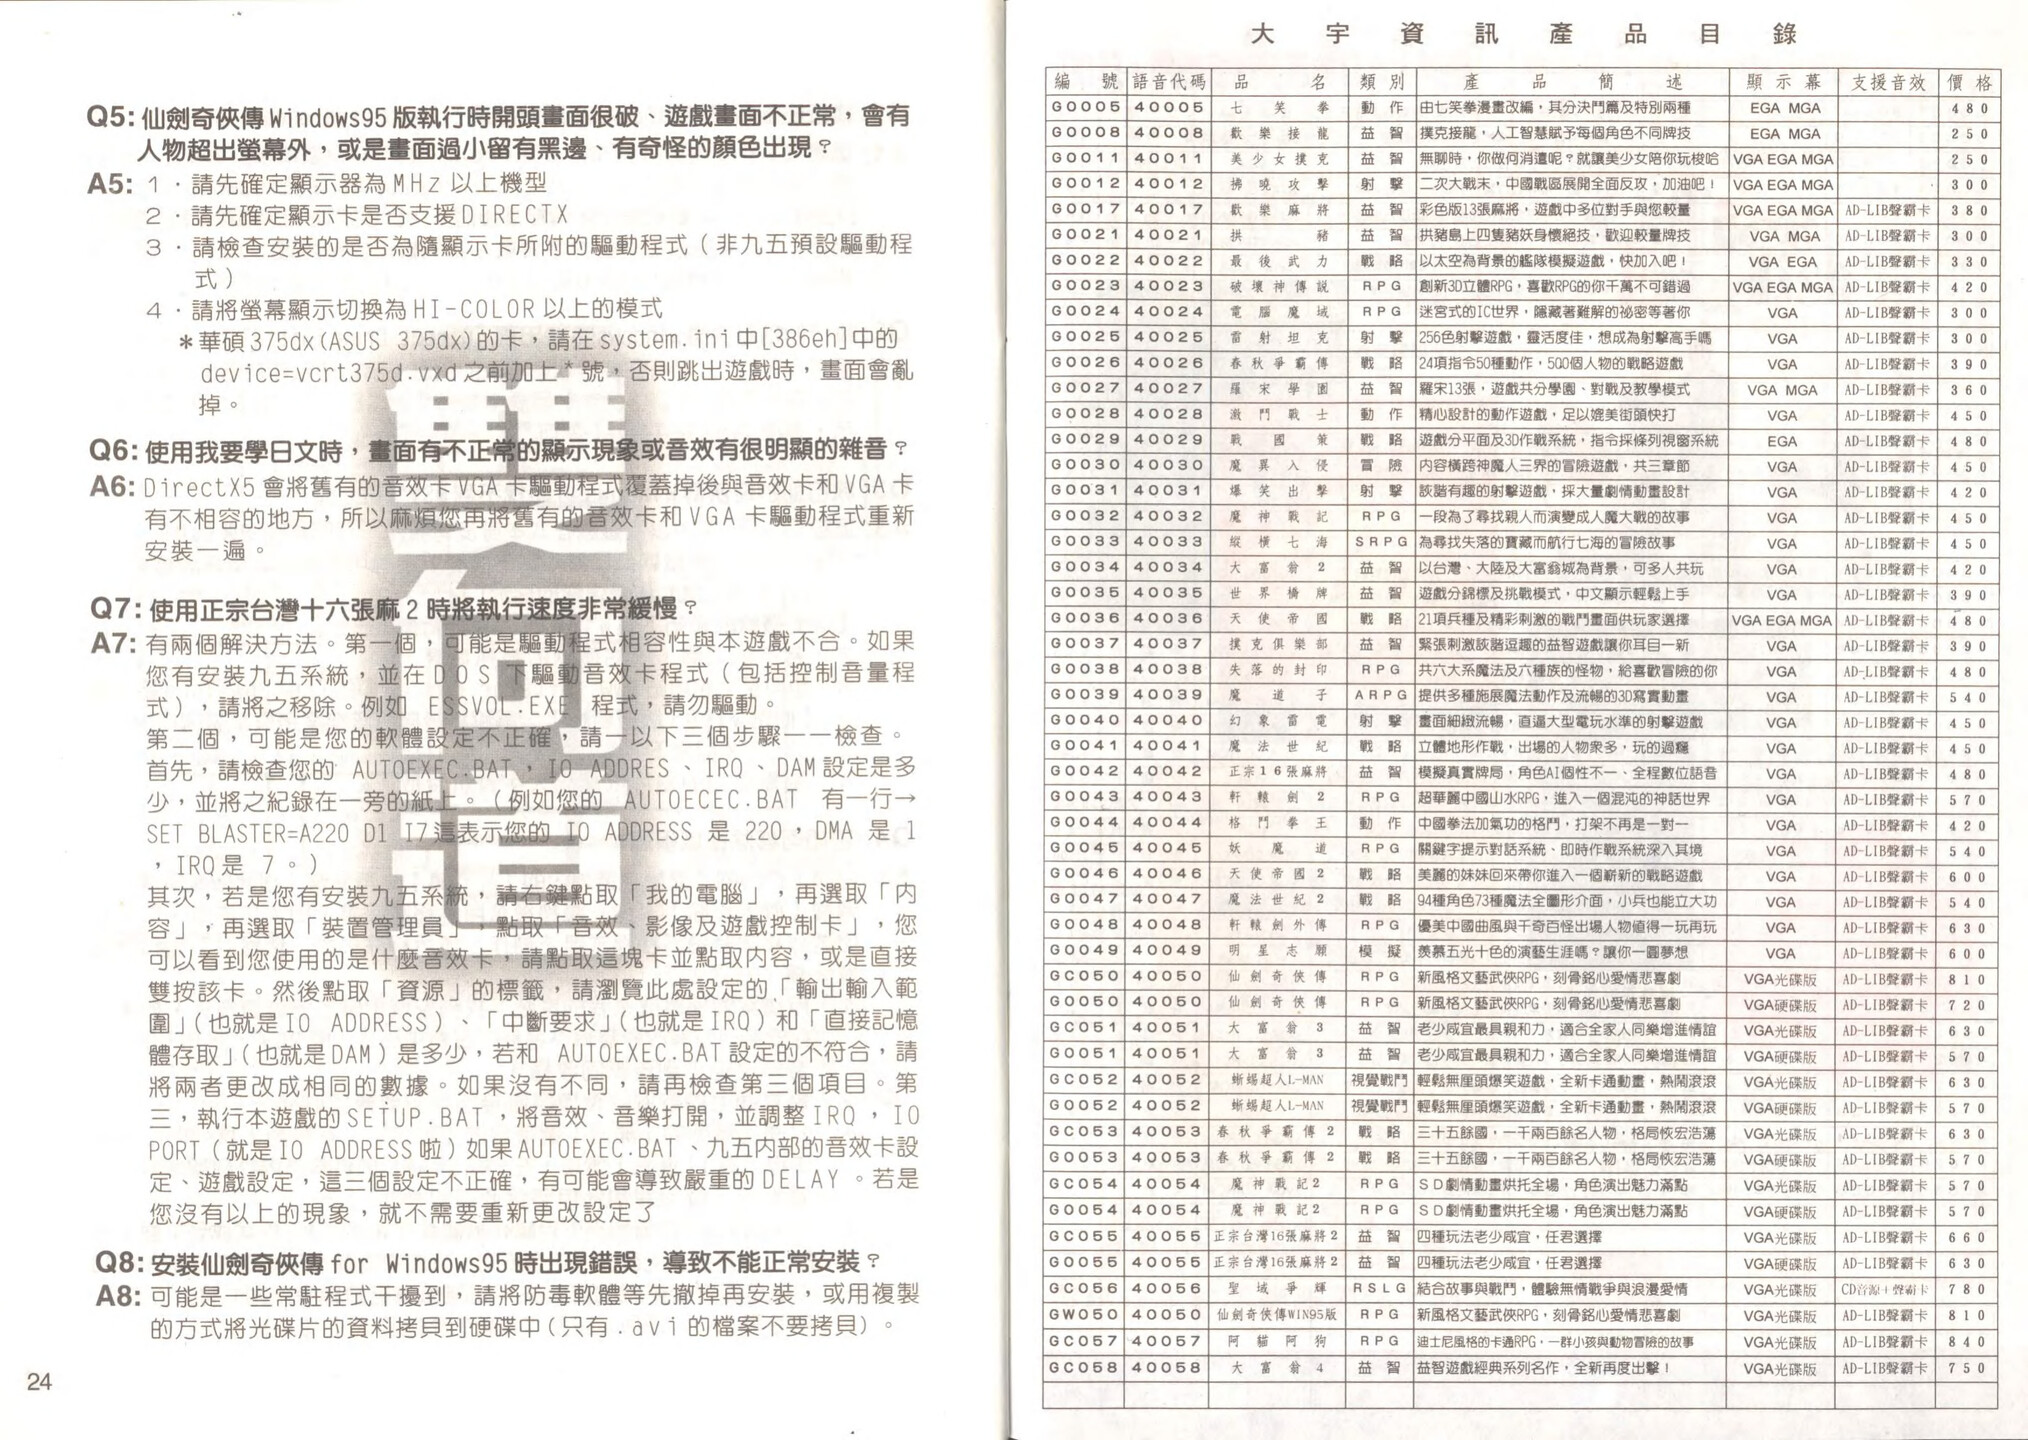 Q5: 仙劍奇俠傳Windows95版執行時開頭畫面很破、遊戲畫面不正常，會有
人物超出螢幕外，或是畫面過小留有黑邊、有奇怪的顏色出現？
A5: 1．請先確定顯示器為MHz以上機型
2．請先確定顯示卡是否支援DIRECTX
3．請檢查安裝的是否為隨顯示卡所附的驅動程式（非九五預設驅動程
式）
4．請將螢幕顯示切換為HI-COLOR以上的模式
＊華碩375dx(ASUS 375dx)的卡，請在system.ini中[386eh]中的
device=vcrt375d.vxd之前加上*號，否則跳出遊戲時，畫面會亂
掉。
Q6: 使用我要學日文時，畫面有不正常的顯示現象或音效有很明顯的雜音？
A6: DirectX5會將舊有的音效卡VGA卡驅動程式覆蓋掉後與音效卡和VGA卡
有不相容的地方，所以麻煩您再將舊有的音效卡和VGA卡驅動程式重新
安裝一遍。
Q7: 使用正宗台灣十六張麻2時將執行速度非常緩慢？
A7: 有兩個解決方法。第一個，可能是驅動程式相容性與本遊戲不合。如果
您有安裝九五系統，並在DOS下驅動音效卡程式（包括控制音量程
式），請將之移除。例如 ESSVOL.EXE 程式，請勿驅動。
第二個，可能是您的軟體設定不正確，請一以下三個步驟一一檢查。
首先，請檢查您的 AUTOEXEC.BAT，IO ADDRES、IRQ、DAM設定是多
少，並將之紀錄在一旁的紙上。（例如您的 AUTOECEC.BAT 有一行→
SET BLASTER=A220 D1 I7這表示您的 IO ADDRESS 是 220，DMA 是 1
，IRQ是 7。）
其次，若是您有安裝九五系統，請右鍵點取「我的電腦」，再選取「內
容」，再選取「裝置管理員」，點取「音效、影像及遊戲控制卡」，您
可以看到您使用的是什麼音效卡，請點取這塊卡並點取內容，或是直接
雙按該卡。然後點取「資源」的標籤，請瀏覽此處設定的「輸出輸入範
圍」（也就是IO ADDRESS）、「中斷要求」（也就是IRQ）和「直接記憶
體存取」（也就是DAM）是多少，若和 AUTOEXEC.BAT設定的不符合，請
將兩者更改成相同的數據。如果沒有不同，請再檢查第三個項目。第
三，執行本遊戲的SETUP.BAT，將音效、音樂打開，並調整IRQ，IO
PORT（就是IO ADDRESS啦）如果AUTOEXEC.BAT、九五內部的音效卡設
定、遊戲設定，這三個設定不正確，有可能會導致嚴重的DELAY。若是
您沒有以上的現象，就不需要重新更改設定了
Q8: 安裝仙劍奇俠傳for Windows95時出現錯誤，導致不能正常安裝？
A8: 可能是一些常駐程式干擾到，請將防毒軟體等先撤掉再安裝，或用複製
的方式將光碟片的資料拷貝到硬碟中（只有.avi的檔案不要拷貝）。
24
雙向道
大宇資訊產品目錄
編號 語音代碼 品名 類別 產品簡述 顯示幕 支援音效 價格
G0005 40005 七笑拳 動作 由七笑拳漫畫改編，其分決鬥篇及特別兩種 EGA MGA 480
G0008 40008 歡樂接龍 益智 撲克接龍，人工智慧賦予每個角色不同牌技 EGA MGA 250
G0011 40011 美少女撲克 益智 無聊時，你做何消遣呢？就讓美少女陪你玩梭哈 VGA EGA MGA 250
G0012 40012 拂曉攻擊 射擊 二次大戰末，中國戰區展開全面反攻，加油吧！ VGA EGA MGA 300
G0017 40017 歡樂麻將 益智 彩色版13張麻將，遊戲中多位對手與您較量 VGA EGA MGA AD-LIB聲霸卡 380
G0021 40021 拱豬 益智 拱豬島上四隻豬妖身懷絕技，歡迎較量牌技 VGA MGA AD-LIB聲霸卡 300
G0022 40022 最後武力 戰略 以太空為背景的艦隊模擬遊戲，快加入吧！ VGA EGA AD-LIB聲霸卡 330
G0023 40023 破壞神傳說 RPG 創新3D立體RPG，喜歡RPG的你千萬不可錯過 VGA EGA MGA AD-LIB聲霸卡 420
G0024 40024 電腦魔域 RPG 迷宮式的IC世界，隱藏著難解的祕密等著你 VGA AD-LIB聲霸卡 300
G0025 40025 雷射坦克 射擊 256色射擊遊戲，靈活度佳，想成為射擊高手嗎 VGA AD-LIB聲霸卡 300
G0026 40026 春秋爭霸傳 戰略 24項指令50種動作，500個人物的戰略遊戲 VGA AD-LIB聲霸卡 390
G0027 40027 羅宋學園 益智 羅宋13張，遊戲共分學園、對戰及教學模式 VGA MGA AD-LIB聲霸卡 360
G0028 40028 激鬥戰士 動作 精心設計的動作遊戲，足以媲美街頭快打 VGA AD-LIB聲霸卡 450
G0029 40029 戰國策 戰略 遊戲分平面及3D作戰系統，指令採條列視窗系統 EGA AD-LIB聲霸卡 480
G0030 40030 魔異入侵 冒險 內容橫跨神魔人三界的冒險遊戲，共三章節 VGA AD-LIB聲霸卡 450
G0031 40031 爆笑出擊 射擊 詼諧有趣的射擊遊戲，採大量劇情動畫設計 VGA AD-LIB聲霸卡 420
G0032 40032 魔神戰記 RPG 一段為了尋找親人而演變成人魔大戰的故事 VGA AD-LIB聲霸卡 450
G0033 40033 縱橫七海 SRPG 為尋找失落的寶藏而航行七海的冒險故事 VGA AD-LIB聲霸卡 450
G0034 40034 大富翁2 益智 以台灣、大陸及大富翁城為背景，可多人共玩 VGA AD-LIB聲霸卡 420
G0035 40035 世界橋牌 益智 遊戲分錦標及挑戰模式，中文顯示輕鬆上手 VGA AD-LIB聲霸卡 390
G0036 40036 天使帝國 戰略 21項兵種及精彩刺激的戰鬥畫面供玩家選擇 VGA EGA MGA AD-LIB聲霸卡 480
G0037 40037 撲克俱樂部 益智 緊張刺激詼諧逗趣的益智遊戲讓你耳目一新 VGA AD-LIB聲霸卡 390
G0038 40038 失落的封印 RPG 共六大系魔法及六種族的怪物，給喜歡冒險的你 VGA AD-LIB聲霸卡 480
G0039 40039 魔道子 ARPG 提供多種施展魔法動作及流暢的3D寫實動畫 VGA AD-LIB聲霸卡 540
G0040 40040 幻象雷電 射擊 畫面細緻流暢，直逼大型電玩水準的射擊遊戲 VGA AD-LIB聲霸卡 450
G0041 40041 魔法世紀 戰略 立體地形作戰，出場的人物眾多，玩的過癮 VGA AD-LIB聲霸卡 450
G0042 40042 正宗16張麻將 益智 模擬真實牌局，角色AI個性不一、全程數位語音 VGA AD-LIB聲霸卡 480
G0043 40043 軒轅劍2 RPG 超華麗中國山水RPG，進入一個混沌的神話世界 VGA AD-LIB聲霸卡 570
G0044 40044 格鬥拳王 動作 中國拳法加氣功的格鬥，打架不再是一對一 VGA AD-LIB聲霸卡 420
G0045 40045 妖魔道 RPG 關鍵字提示對話系統、即時作戰系統深入其境 VGA AD-LIB聲霸卡 540
G0046 40046 天使帝國2 戰略 美麗的妹妹回來帶你進入一個嶄新的戰略遊戲 VGA AD-LIB聲霸卡 600
G0047 40047 魔法世紀2 戰略 94種角色73種魔法全圖形介面，小兵也能立大功 VGA AD-LIB聲霸卡 540
G0048 40048 軒轅劍外傳 RPG 優美中國曲風與千奇百怪出場人物值得一玩再玩 VGA AD-LIB聲霸卡 630
G0049 40049 明星志願 模擬 羨慕五光十色的演藝生涯嗎？讓你一圓夢想 VGA AD-LIB聲霸卡 600
GC050 40050 仙劍奇俠傳 RPG 新風格文藝武俠RPG，刻骨銘心愛情悲喜劇 VGA光碟版 AD-LIB聲霸卡 810
G0050 40050 仙劍奇俠傳 RPG 新風格文藝武俠RPG，刻骨銘心愛情悲喜劇 VGA硬碟版 AD-LIB聲霸卡 720
GC051 40051 大富翁3 益智 老少咸宜最具親和力，適合全家人同樂增進情誼 VGA光碟版 AD-LIB聲霸卡 630
G0051 40051 大富翁3 益智 老少咸宜最具親和力，適合全家人同樂增進情誼 VGA硬碟版 AD-LIB聲霸卡 570
GC052 40052 蜥蜴超人L-MAN 視覺戰鬥 輕鬆無厘頭爆笑遊戲，全新卡通動畫，熱鬧滾滾 VGA光碟版 AD-LIB聲霸卡 630
G0052 40052 蜥蜴超人L-MAN 視覺戰鬥 輕鬆無厘頭爆笑遊戲，全新卡通動畫，熱鬧滾滾 VGA硬碟版 AD-LIB聲霸卡 570
GC053 40053 春秋爭霸傳2 戰略 三十五餘國，一千兩百餘名人物，格局恢宏浩蕩 VGA光碟版 AD-LIB聲霸卡 630
G0053 40053 春秋爭霸傳2 戰略 三十五餘國，一千兩百餘名人物，格局恢宏浩蕩 VGA硬碟版 AD-LIB聲霸卡 570
GC054 40054 魔神戰記2 RPG SD劇情動畫烘托全場，角色演出魅力滿點 VGA光碟版 AD-LIB聲霸卡 570
G0054 40054 魔神戰記2 RPG SD劇情動畫烘托全場，角色演出魅力滿點 VGA硬碟版 AD-LIB聲霸卡 570
GC055 40055 正宗台灣16張麻將2 益智 四種玩法老少咸宜，任君選擇 VGA光碟版 AD-LIB聲霸卡 660
G0055 40055 正宗台灣16張麻將2 益智 四種玩法老少咸宜，任君選擇 VGA硬碟版 AD-LIB聲霸卡 630
GC056 40056 聖域爭輝 RSLG 結合故事與戰鬥，體驗無情戰爭與浪漫愛情 VGA光碟版 CD音源+聲霸卡 780
GW050 40050 仙劍奇俠傳WIN95版 RPG 新風格文藝武俠RPG，刻骨銘心愛情悲喜劇 VGA光碟版 AD-LIB聲霸卡 810
GC057 40057 阿貓阿狗 RPG 迪士尼風格的卡通RPG，一群小孩與動物冒險的故事 VGA光碟版 AD-LIB聲霸卡 840
GC058 40058 大富翁4 益智 益智遊戲經典系列名作，全新再度出擊！ VGA光碟版 AD-LIB聲霸卡 750